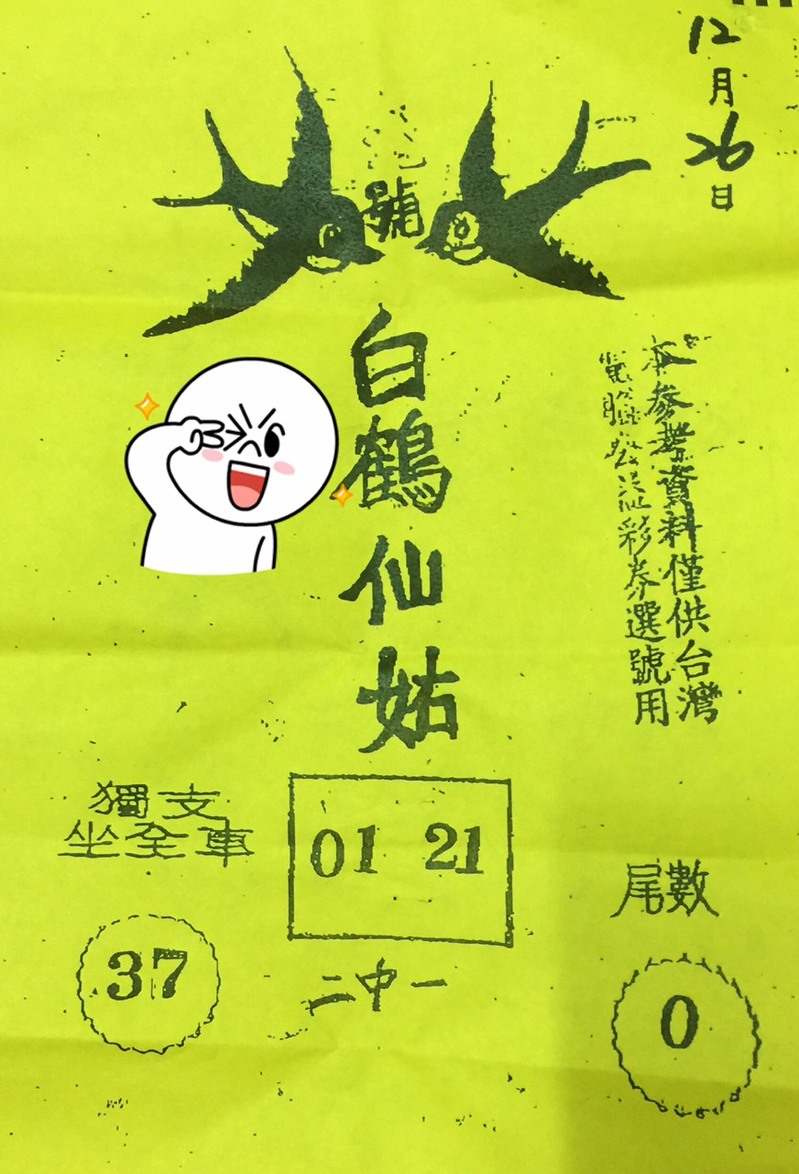 12月26日
號
白鶴仙姑
本參考資料僅供台灣
電腦公益彩券選號用
獨支
坐全車
37
01 21
二中一
尾數
0